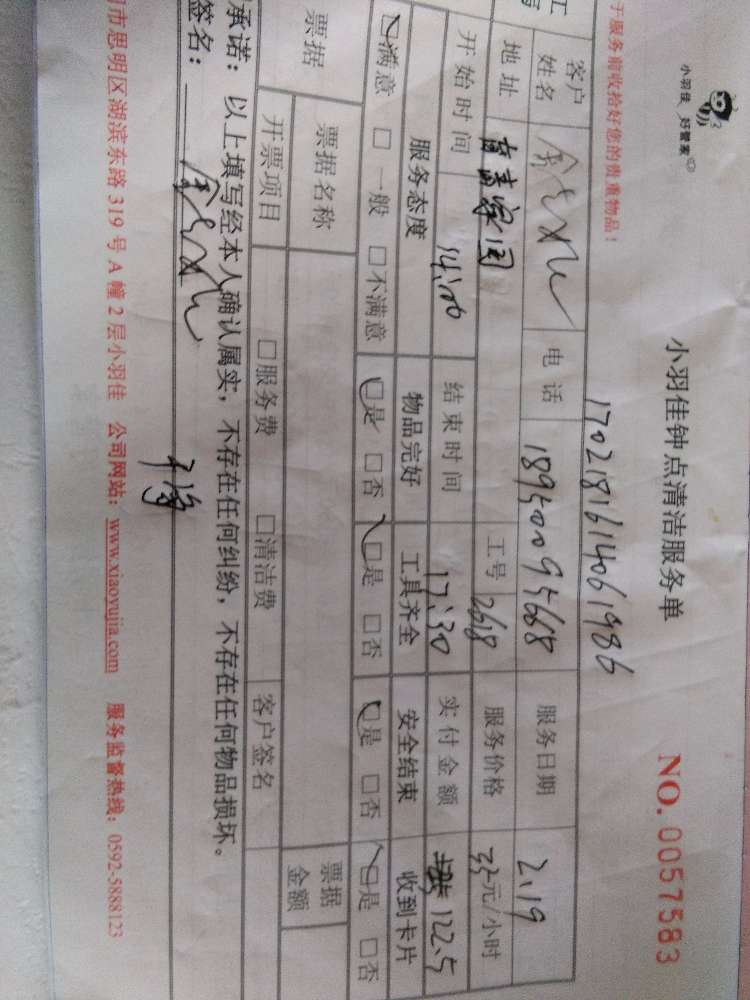 小羽佳 好管家
小羽佳钟点清洁服务单
NO.0057583
于服务前收拾好您的贵重物品！
1702181614061986
客户姓名 电话 18950009568 服务日期 2.19
地址 古龙家园 工号 2618 服务价格 35元/小时
开始时间 14:00 结束时间 17:30 实付金额 122.5
服务态度 物品完好 工具齐全 安全结束 收到卡片
☑满意 □一般 □不满意 ☑是 □否 ☑是 □否 ☑是 □否 ☑是 □否
票据 票据名称 票据金额
开票项目 □服务费 □清洁费 客户签名
承诺：以上填写经本人确认属实，不存在任何纠纷，不存在任何物品损坏。
签名：
市思明区湖滨东路319号A幢2层小羽佳 公司网站：www.xiaoyujia.com 服务监督热线：0592-5888123